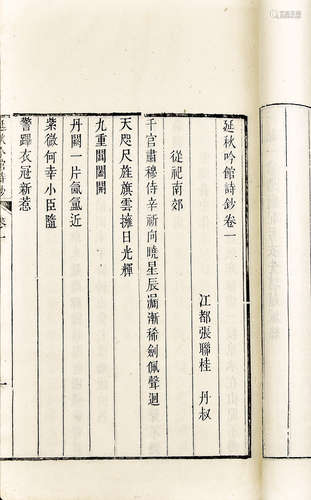 延秋吟館詩鈔卷一
江都張聯桂 丹叔
從祀南郊
千官肅穆侍辛祈向曉星辰漏漸稀劍佩聲迴
天咫尺旌旗雲擁日光輝
九重閶闔開
丹闕一片氤氳近
紫微何幸小臣隨
警蹕衣冠新惹
延秋吟館詩鈔 卷一
一